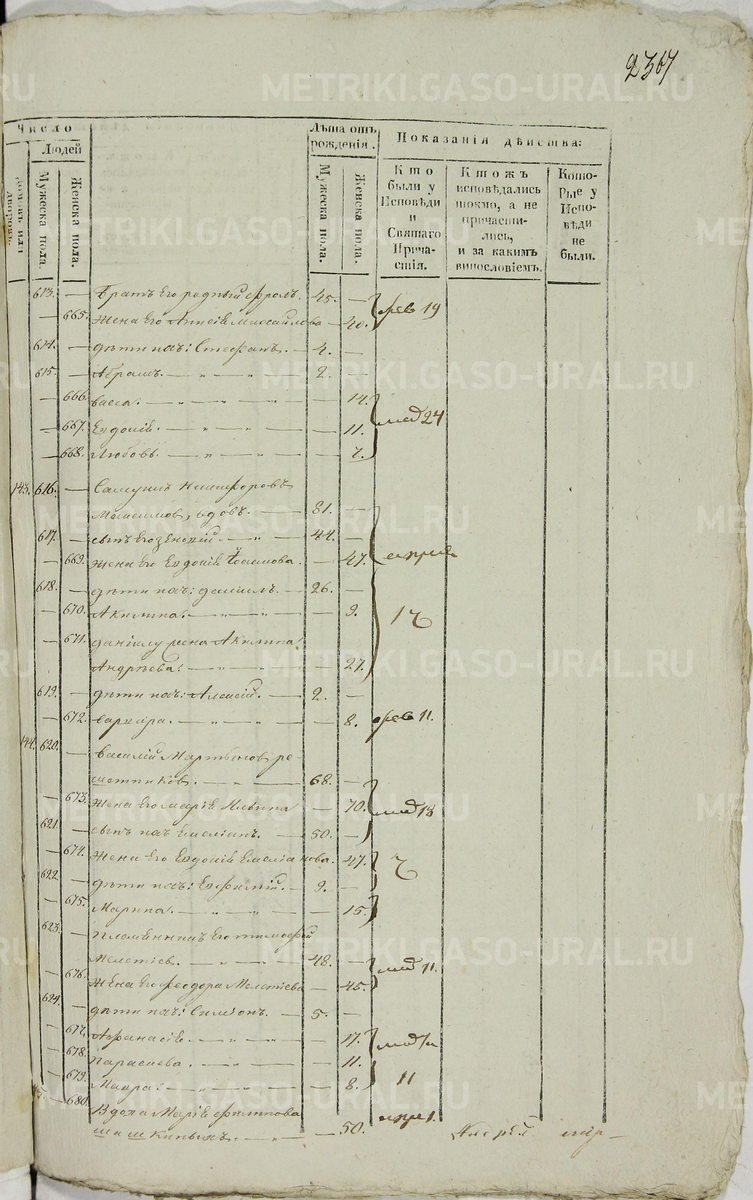 2367
METRIKI.GASO-URAL.RU
Число
Людей
Мужеска пола.
Женска пола.
Лѣта отъ рожденія.
Мужеска пола.
Женска пола.
Показанія дѣйства:
Кто были у Исповѣди и Святаго Причастія.
Ктожъ исповѣдались токмо, а не причастились, и за какимъ винословіемъ.
Которые у Исповѣди не были.
613. — Братъ Его родный Фролъ. 45. — фев 19
— 665. Жена Его Михайлова — 40.
614. — дѣти ихъ: Стефанъ. — 4. —
615. — Абрамъ. — „ — „ — 2. —
— 666. васса. — „ — „ — 14.
— 667. Евдокія. — „ — „ — 11. 24
— 668. Любовь. — „ — 7.
143. 616. — Самуилъ Никифоровъ
вдовъ. — 81. —
617. — сынъ его 44. —
— 669. Жена Его Евдокія — 47.
618. — дѣти ихъ: Даніилъ. — 26. —
— 670. Акилина. — „ — „ — 9.
— 671. Даніилу жена Акилина
Андрѣева. — „ — 27.
619. — дѣти ихъ: Алексій. — 2. —
— 672. варвара. — „ — „ — 8. фев 11.
144. 620. — Василій Мартыновъ Ре-
шетниковъ. — „ — 68. —
— 673. Жена Его Марія Ильина — 70.
621. — сынъ ихъ Емеліанъ. — 50. —
— 674. Жена Его Евдокія — 47.
622. — дѣти ихъ: Евфимій. — 9. —
— 675. Марина. — „ — „ — 15.
623. — племянникъ Его Тимофей
Мелетіевъ. — „ — 48. — 11.
— 676. Жена Его Феодора Мелетіева — 45.
624. — дѣти ихъ: Симіонъ. — 5. —
— 677. Афанасія. — „ — „ — 17.
— 678. Параскева. — „ — 11.
— 679. Мавра. — „ — „ — 8. 11
— 680. Вдова Марія Филипова
— „ — 50.